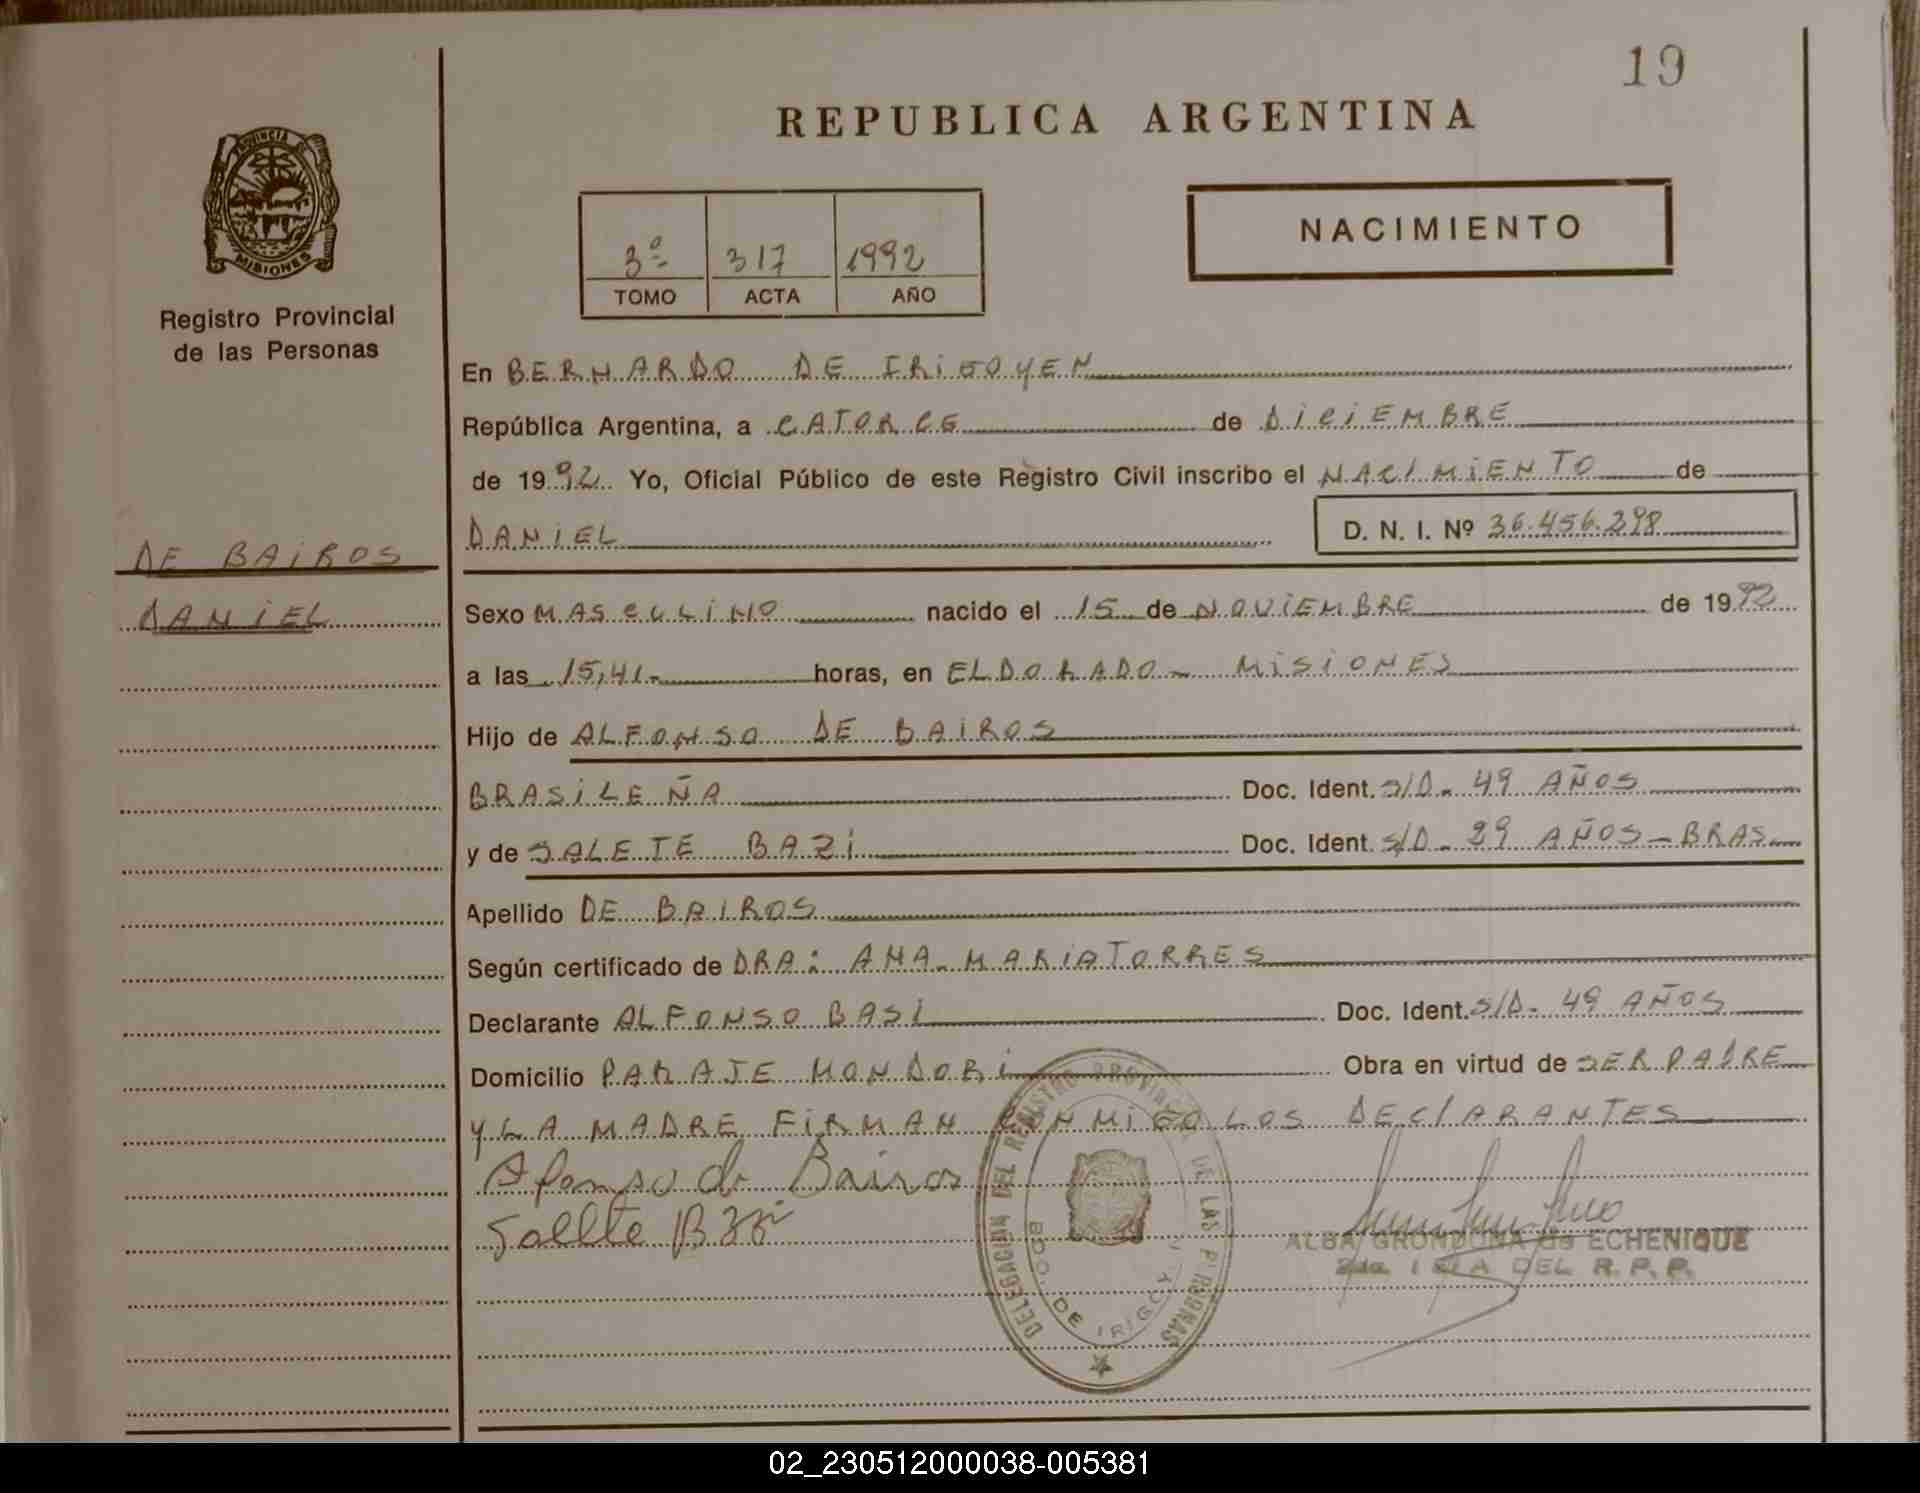 19
REPUBLICA ARGENTINA
PROVINCIA DE
MISIONES
Registro Provincial
de las Personas
3º 317 1992
TOMO ACTA AÑO
NACIMIENTO
En BERNARDO DE IRIGOYEN
República Argentina, a CATORCE de DICIEMBRE
de 1992 Yo, Oficial Público de este Registro Civil inscribo el NACIMIENTO de
DANIEL D. N. I. Nº 36.456.298
DE BAIROS
DANIEL
Sexo MASCULINO nacido el 15 de NOVIEMBRE de 1992
a las 15,41 horas, en ELDORADO - MISIONES
Hijo de ALFONSO DE BAIROS
BRASILEÑA Doc. Ident. S/D. 49 AÑOS
y de SALETE BAZI Doc. Ident. S/D - 29 AÑOS - BRAS
Apellido DE BAIROS
Según certificado de DRA: ANA MARIA TORRES
Declarante ALFONSO BASI Doc. Ident. S/D. 49 AÑOS
Domicilio PARAJE MONDORI Obra en virtud de SER PADRE
Y LA MADRE FIRMAN CONMIGO LOS DECLARANTES
Afonso de Bairos
Sallte
DELEGACION DEL REGISTRO PROVINCIAL DE LAS PERSONAS
BDO. DE IRIGOYEN
ALBA GRONDONA de ECHENIQUE
DEL R. P. P.
02_230512000038-005381